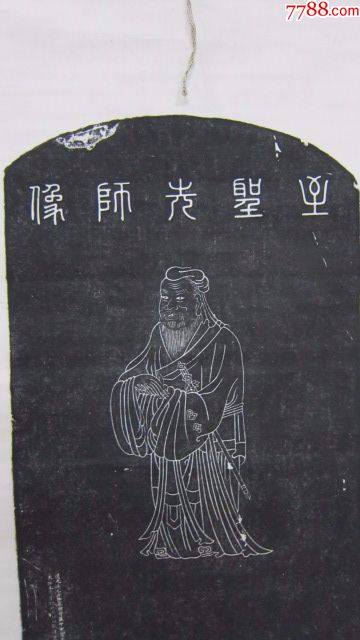 7788.com
至聖先師像